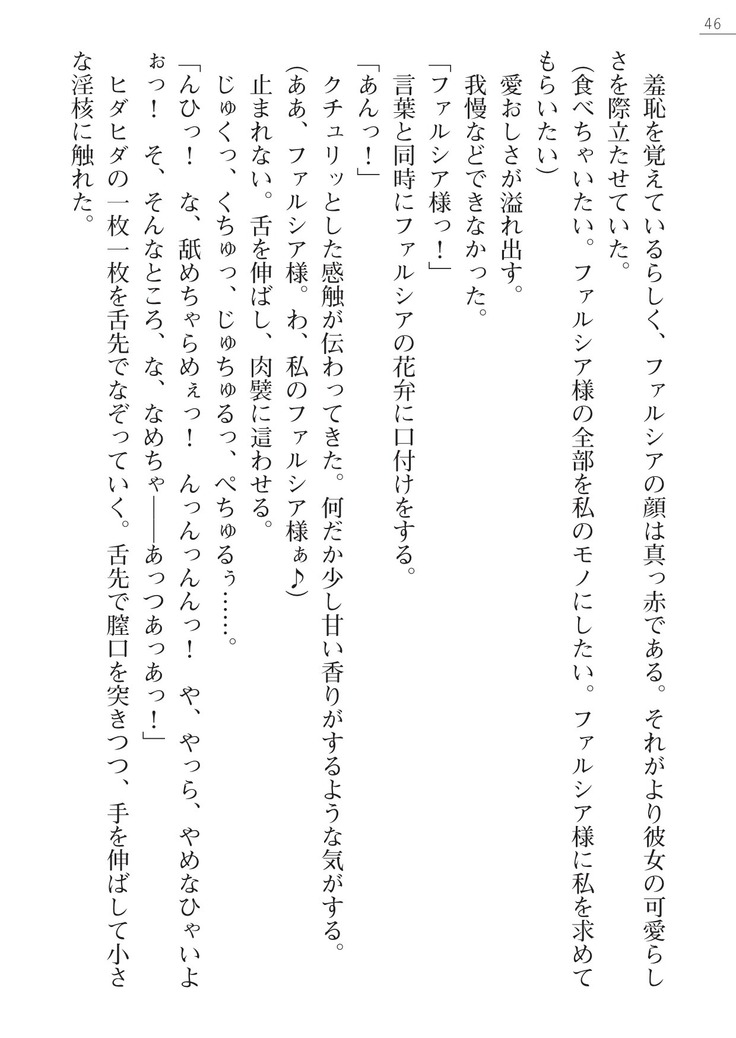 46
羞恥を覚えているらしく、ファルシアの顔は真っ赤である。それがより彼女の可愛らし
さを際立たせていた。
(食べちゃいたい。ファルシア様の全部を私のモノにしたい。ファルシア様に私を求めて
もらいたい)
愛おしさが溢れ出す。
我慢などできなかった。
「ファルシア様っ！」
言葉と同時にファルシアの花弁に口付けをする。
「あんっ！」
クチュリッとした感触が伝わってきた。何だか少し甘い香りがするような気がする。
(ああ、ファルシア様。わ、私のファルシア様ぁ♪)
止まれない。舌を伸ばし、肉襞に這わせる。
じゅくっ、くちゅっ、じゅちゅるっ、ぺちゅるぅ……。
「んひっ！　な、舐めちゃらめぇっ！　んっんっんんっ！　や、やっら、やめなひゃいよ
ぉっ！　そ、そんなところ、な、なめちゃ――あっつあっあっ！」
ヒダヒダの一枚一枚を舌先でなぞっていく。舌先で膣口を突きつつ、手を伸ばして小さ
な淫核に触れた。